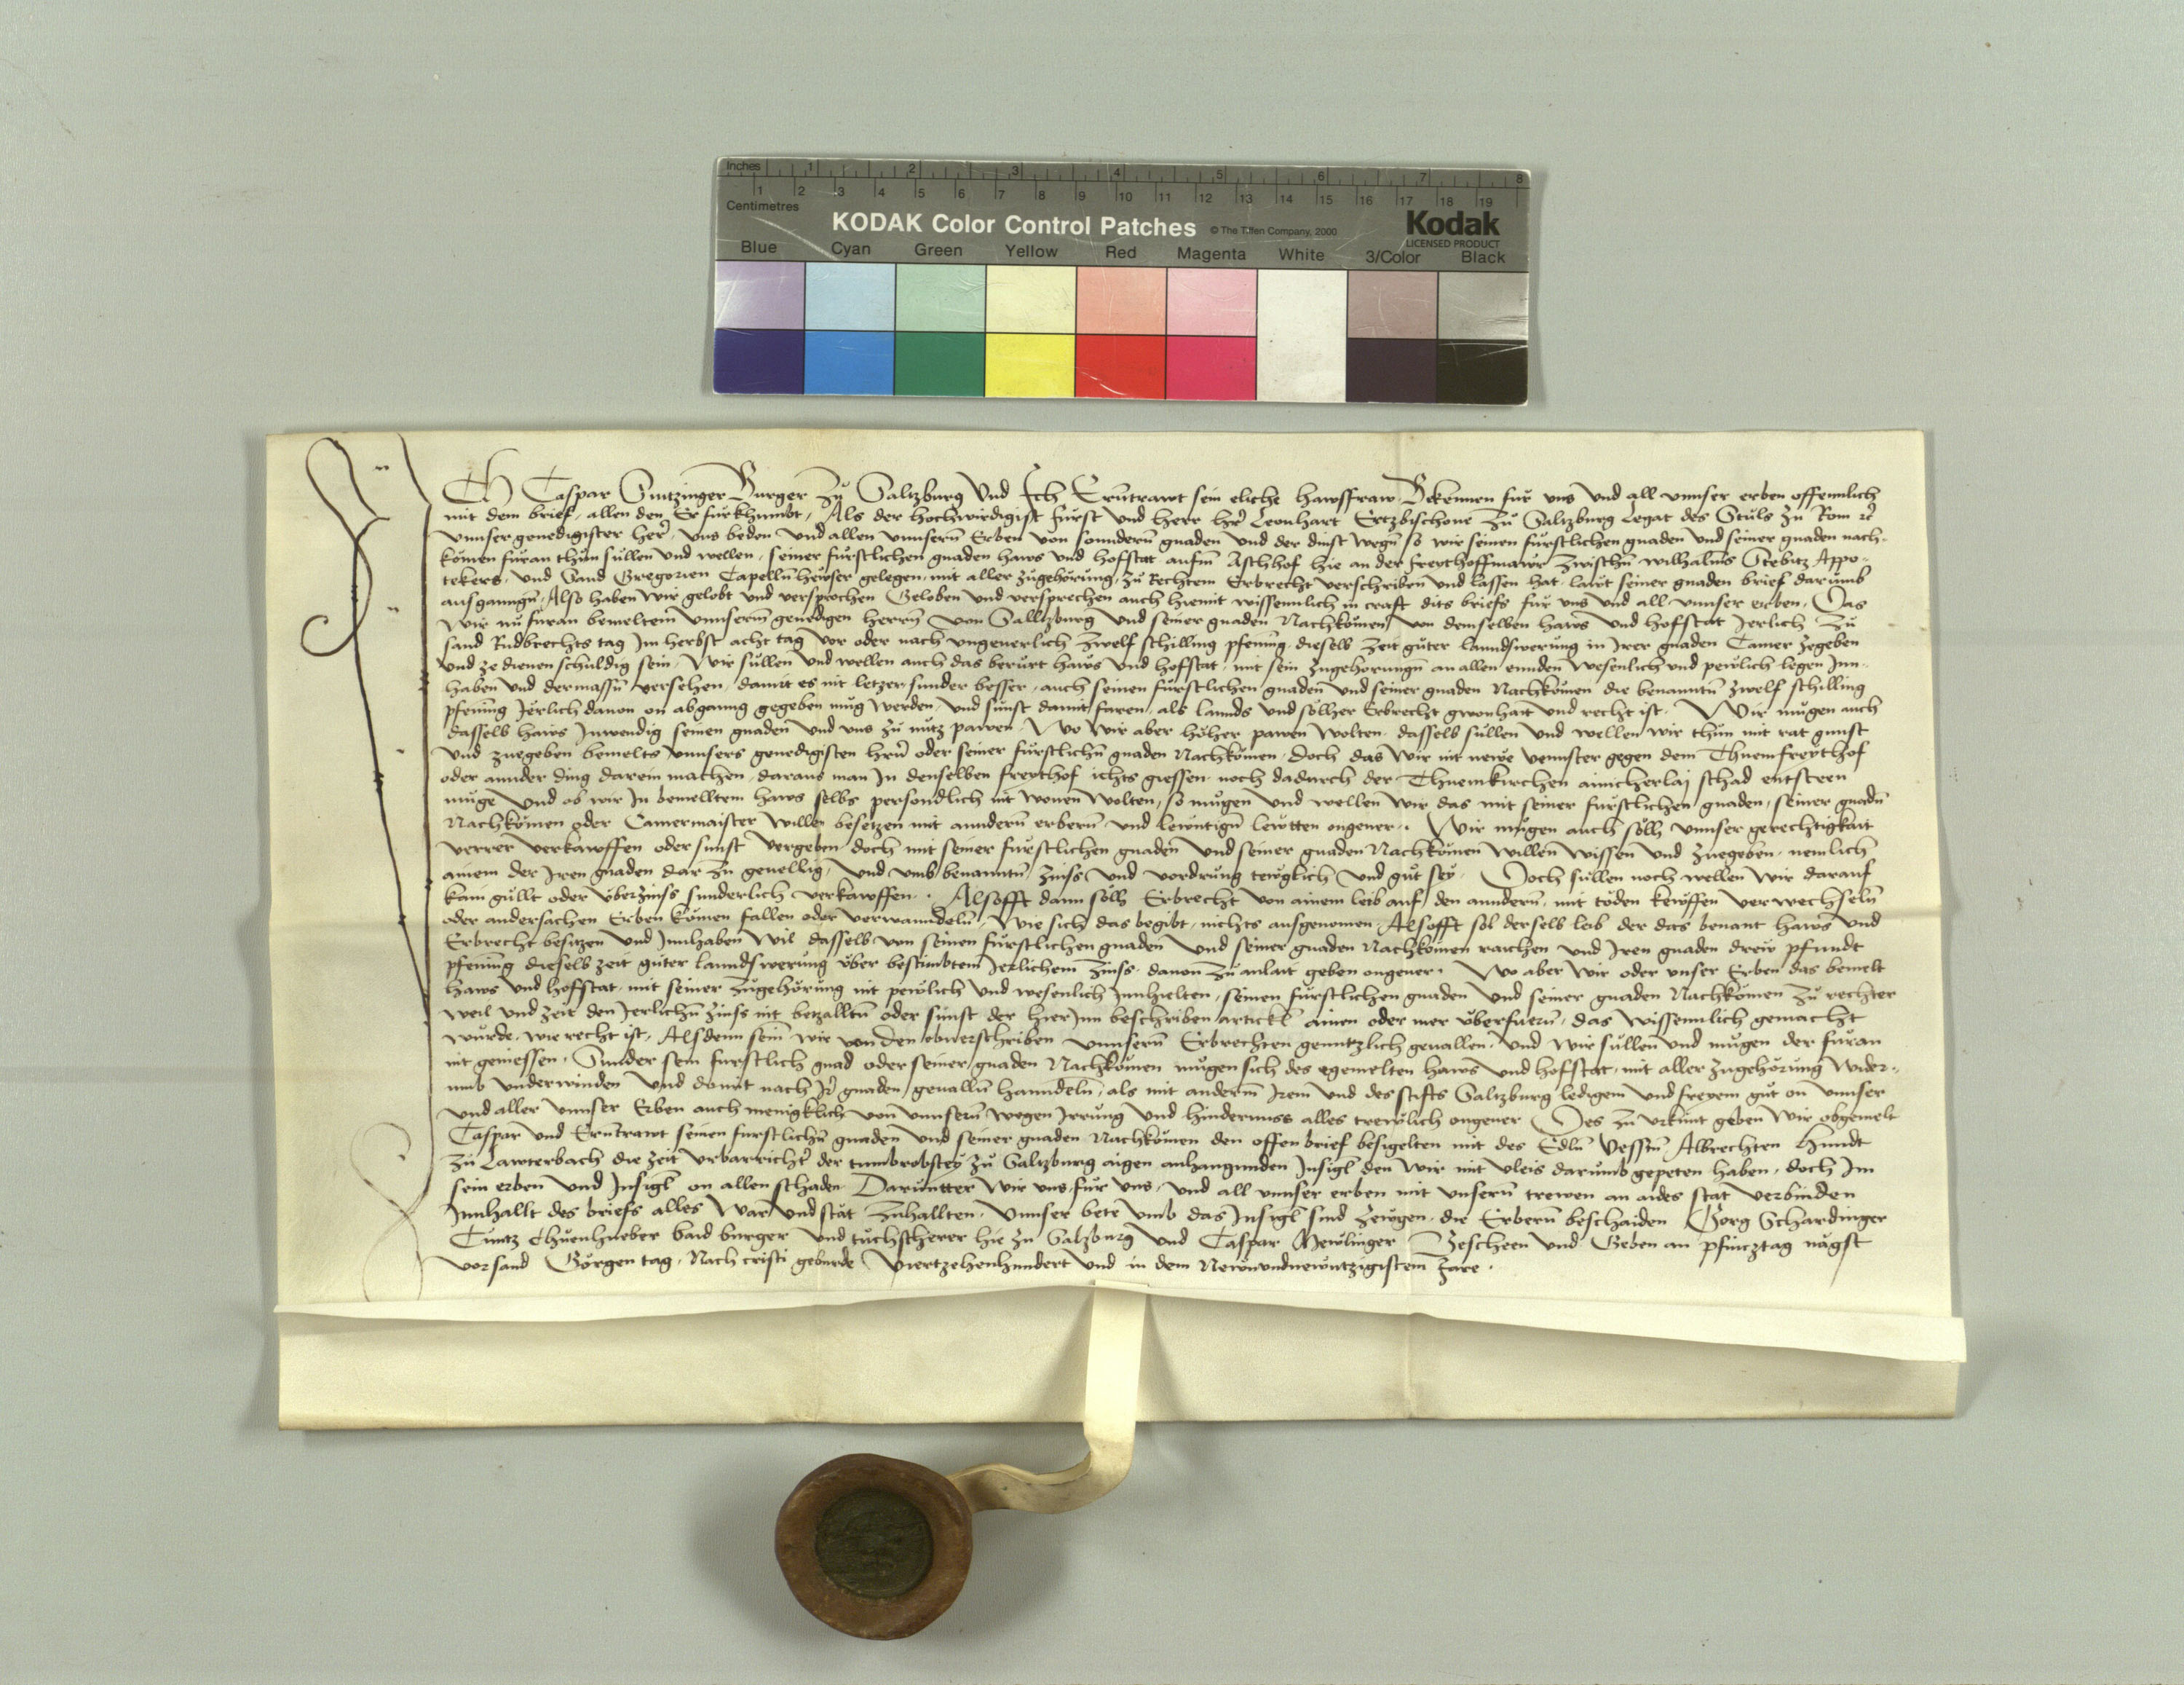 Inches 1 2 3 4 5 6 7 8
Centimetres 1 2 3 4 5 6 7 8 9 10 11 12 13 14 15 16 17 18 19
KODAK Color Control Patches © The Tiffen Company, 2000 Kodak
LICENSED PRODUCT
Blue Cyan Green Yellow Red Magenta White 3/Color Black
Ich Caspar Gintzinger Burger Zu Saltzburg Und Ich Erntrawt sein eliche hawsfraw Bekennen fur vns vnd all vnnser erben offennlich
mit dem brief, allen den Er furkhumbt, Als der hochwirdigist furst vnd herr hr̄ Leonhart Ertzbischoue Zu Saltzburg Legat des Stuls zu Rom ꝛc̄
vnnser genedigister her̄, vns beden vnd allen vnnsern̄ Erben von sonndern̄ gnaden vnd der dinst wegn̄ so wir seinen furstlichen gnaden vnd seiner gnaden nach-
komen furan thun sullen vnd wellen, seiner furstlichen gnaden haws vnd hofstat aufm̄ Aschhof hie an der freythoffmawr zwischn̄ wilhalms Stebitz Appo-
tekers, vnd Sand Gregorien Capelln̄ hewser gelegen, mit aller zugehorung, zu Rechtem Erbrecht verschriben vnd lassen hat, lawt seiner gnaden brief darumb
ausganngn̄, Also haben wir gelobt vnd versprochen Geloben vnd versprechen auch hiemit wissennlich in craft dits briefs fur vns vnd all vnnser erben, Das
Wir nu furan bemeltem vnnserm̄ genedigen herrn̄ von Salltzburg vnd seiner gnaden Nachkomen von demselben haws vnd hofstat Jerlich Zu
sand Rudbrechts tag Im herbst acht tag vor oder nach vngeuerlich zwelf schilling pfening, dieselb zeit guter lanndswerung in Irer gnaden Camer zegeben
vnd ze dienen schuldig sein, Wir sullen vnd wellen auch das berurt haws vnd hofstat, mit sein zugehorungn̄ an allen ennden wesenlich vnd pewlich legen Inn-
haben vnd dermassn̄ versehen, damit es nit letzer sunder besser, auch seinen furstlichen gnaden vnd seiner gnaden Nachkomen die benanntn̄ zwelf schilling
pfening Jerlich dauon on abganng gegeben mug werden, vnd sunst damit faren, als lannds vnd sollher Erbrecht gwonhait vnd recht ist. Wir mugen auch
dasselb haws Inwendig seinen gnaden vnd vns zu nutz pawen, Wo wir aber hoher pawen wolten, dasselb sullen vnd wellen wir thun mit rat gunst
vnd zuegeben bemelts vnnsers genedigisten hrn̄ oder seiner furstlichn̄ gnaden Nachkomen, doch das wir nit newe vennster gegen dem Thuemfreythof
oder annder ding darein machen, daraus man In denselben freythof ichts giessen noch dadurch der Thuemkirchen ainicherlaj schad entsteen
muge Vnd ob wir In bemelltem haws selbs persondlich nit wonen wolten, so mugen vnd wellen wir das mit seiner furstlichen gnaden, seiner gnadn̄
Nachkomen oder Camermaister willen besetzen mit anndern̄ erbern̄ vnd lewntign̄ lewtten ongeuer. Wir mugen auch sollh vnnser gerechtigkait
verrer verkawffen oder sunst vergeben, doch mit seiner furstlichen gnaden vnd seiner gnaden Nachkomen willen wissen vnd zuegeben, nemlich
ainem der Iren gnaden dar zu geuellig, vnd vmb benanntn̄ zinss vnd vordrung tewglich vnd gut sey. Doch sullen noch wellen wir darauf
kain gullt oder vberzinss sunderlich verkawffen. Alsofft dann sollh Erbrecht von ainem leib auf den anndern̄, mit toden kewffen verwechseln̄
oder andersachen Erben komen fallen oder verwanndeln̄, wie sich das begibt, nichts ausgenomen, Alsofft sol derselb leib der das benant haws vnd
Erbrecht besitzen vnd Innhaben wil dasselb von seinen furstlichen gnaden vnd seiner gnaden Nachkomen raichen vnd Iren gnaden drew pfundt
pfening dieselb zeit guter lanndswerung vber bestimbtem Jerlichem zinss, dauon zu anlait geben ongeuer. Wo aber wir oder vnser Erben das bemelt
haws vnd hofstat, mit seiner zugehorung nit pewlich vnd wesenlich Innhielten, seinen furstlichen gnaden vnd seiner gnaden Nachkomen zu rechter
weil vnd zeit den Jerlichn̄ zinss nit betzalltn̄ oder sunst der hierInn beschriben artickl ainen oder mer vberfuern̄, das wissennlich gemacht
wurde, wie recht ist, Alsdenn sein wir von den obuerschriben vnnsern̄ Erbrechten genntzlich geuallen, vnd wir sullen vnd mugen der furan
nit geniessen, Sunder sein furstlich gnad oder seiner gnaden Nachkomen mugen sich des egemelten haws vnd hofstat, mit aller zugehorung wider-
umb vnderwinden vnd damit nach Ir̄ gnaden geualln̄ hanndeln̄, als mit anderm̄ Irem vnd des stifts Saltzburg ledigem vnd freyem gut on vnnser
vnd aller vnnser Erben auch menigklich von vnnsern̄ wegen Irrung vnd hindernuss alles trewlich ongeuer Des zu vrkunt geben wir obgemelt
Caspar vnd Erntrawt seinen furstlichn̄ gnaden vnd seiner gnaden Nachkomen den offen brief besigelten mit des Edln̄ Vesstn̄ Albrechten Hundt
zu Lawterbach die zeit vrbarricht̄ der tumbrobstey zu Saltzburg aigen anhangunden Insigl den wir mit vleis darumb gepeten haben, doch Im
sein erben vnd Insigl on allen schaden Daruntter wir vns, fur vns, vnd all vnnser erben mit vnsern̄ trewen an aides stat verbinden
Innhallt des briefs alles war vnd stat zuhallten, Vnnser bete vmb das Insigl sind zewgen, die Erbern̄ beschaiden Gorg Schardinger
Cuntz Chuenhueber baid burger vnd tuchscherer hie zu Salzburg vnd Caspar Mewlinger Gescheen vnd Geben an pfincztag nagst
vor sand Gorgen tag, Nach cristi geburde Viertzehenhundert vnd in dem Newnvndnewntzigistem Jare.